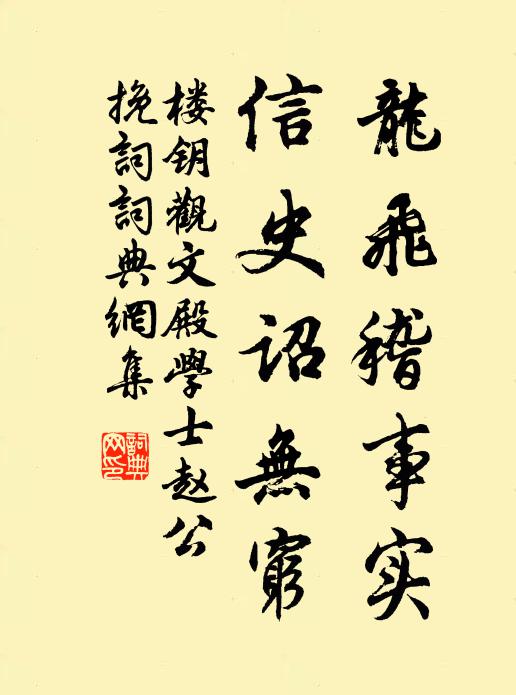 龍飛稽事实
信史詔無窮
楼钥觀文殿學士赵公
挽詞詞典網集
詞典网印